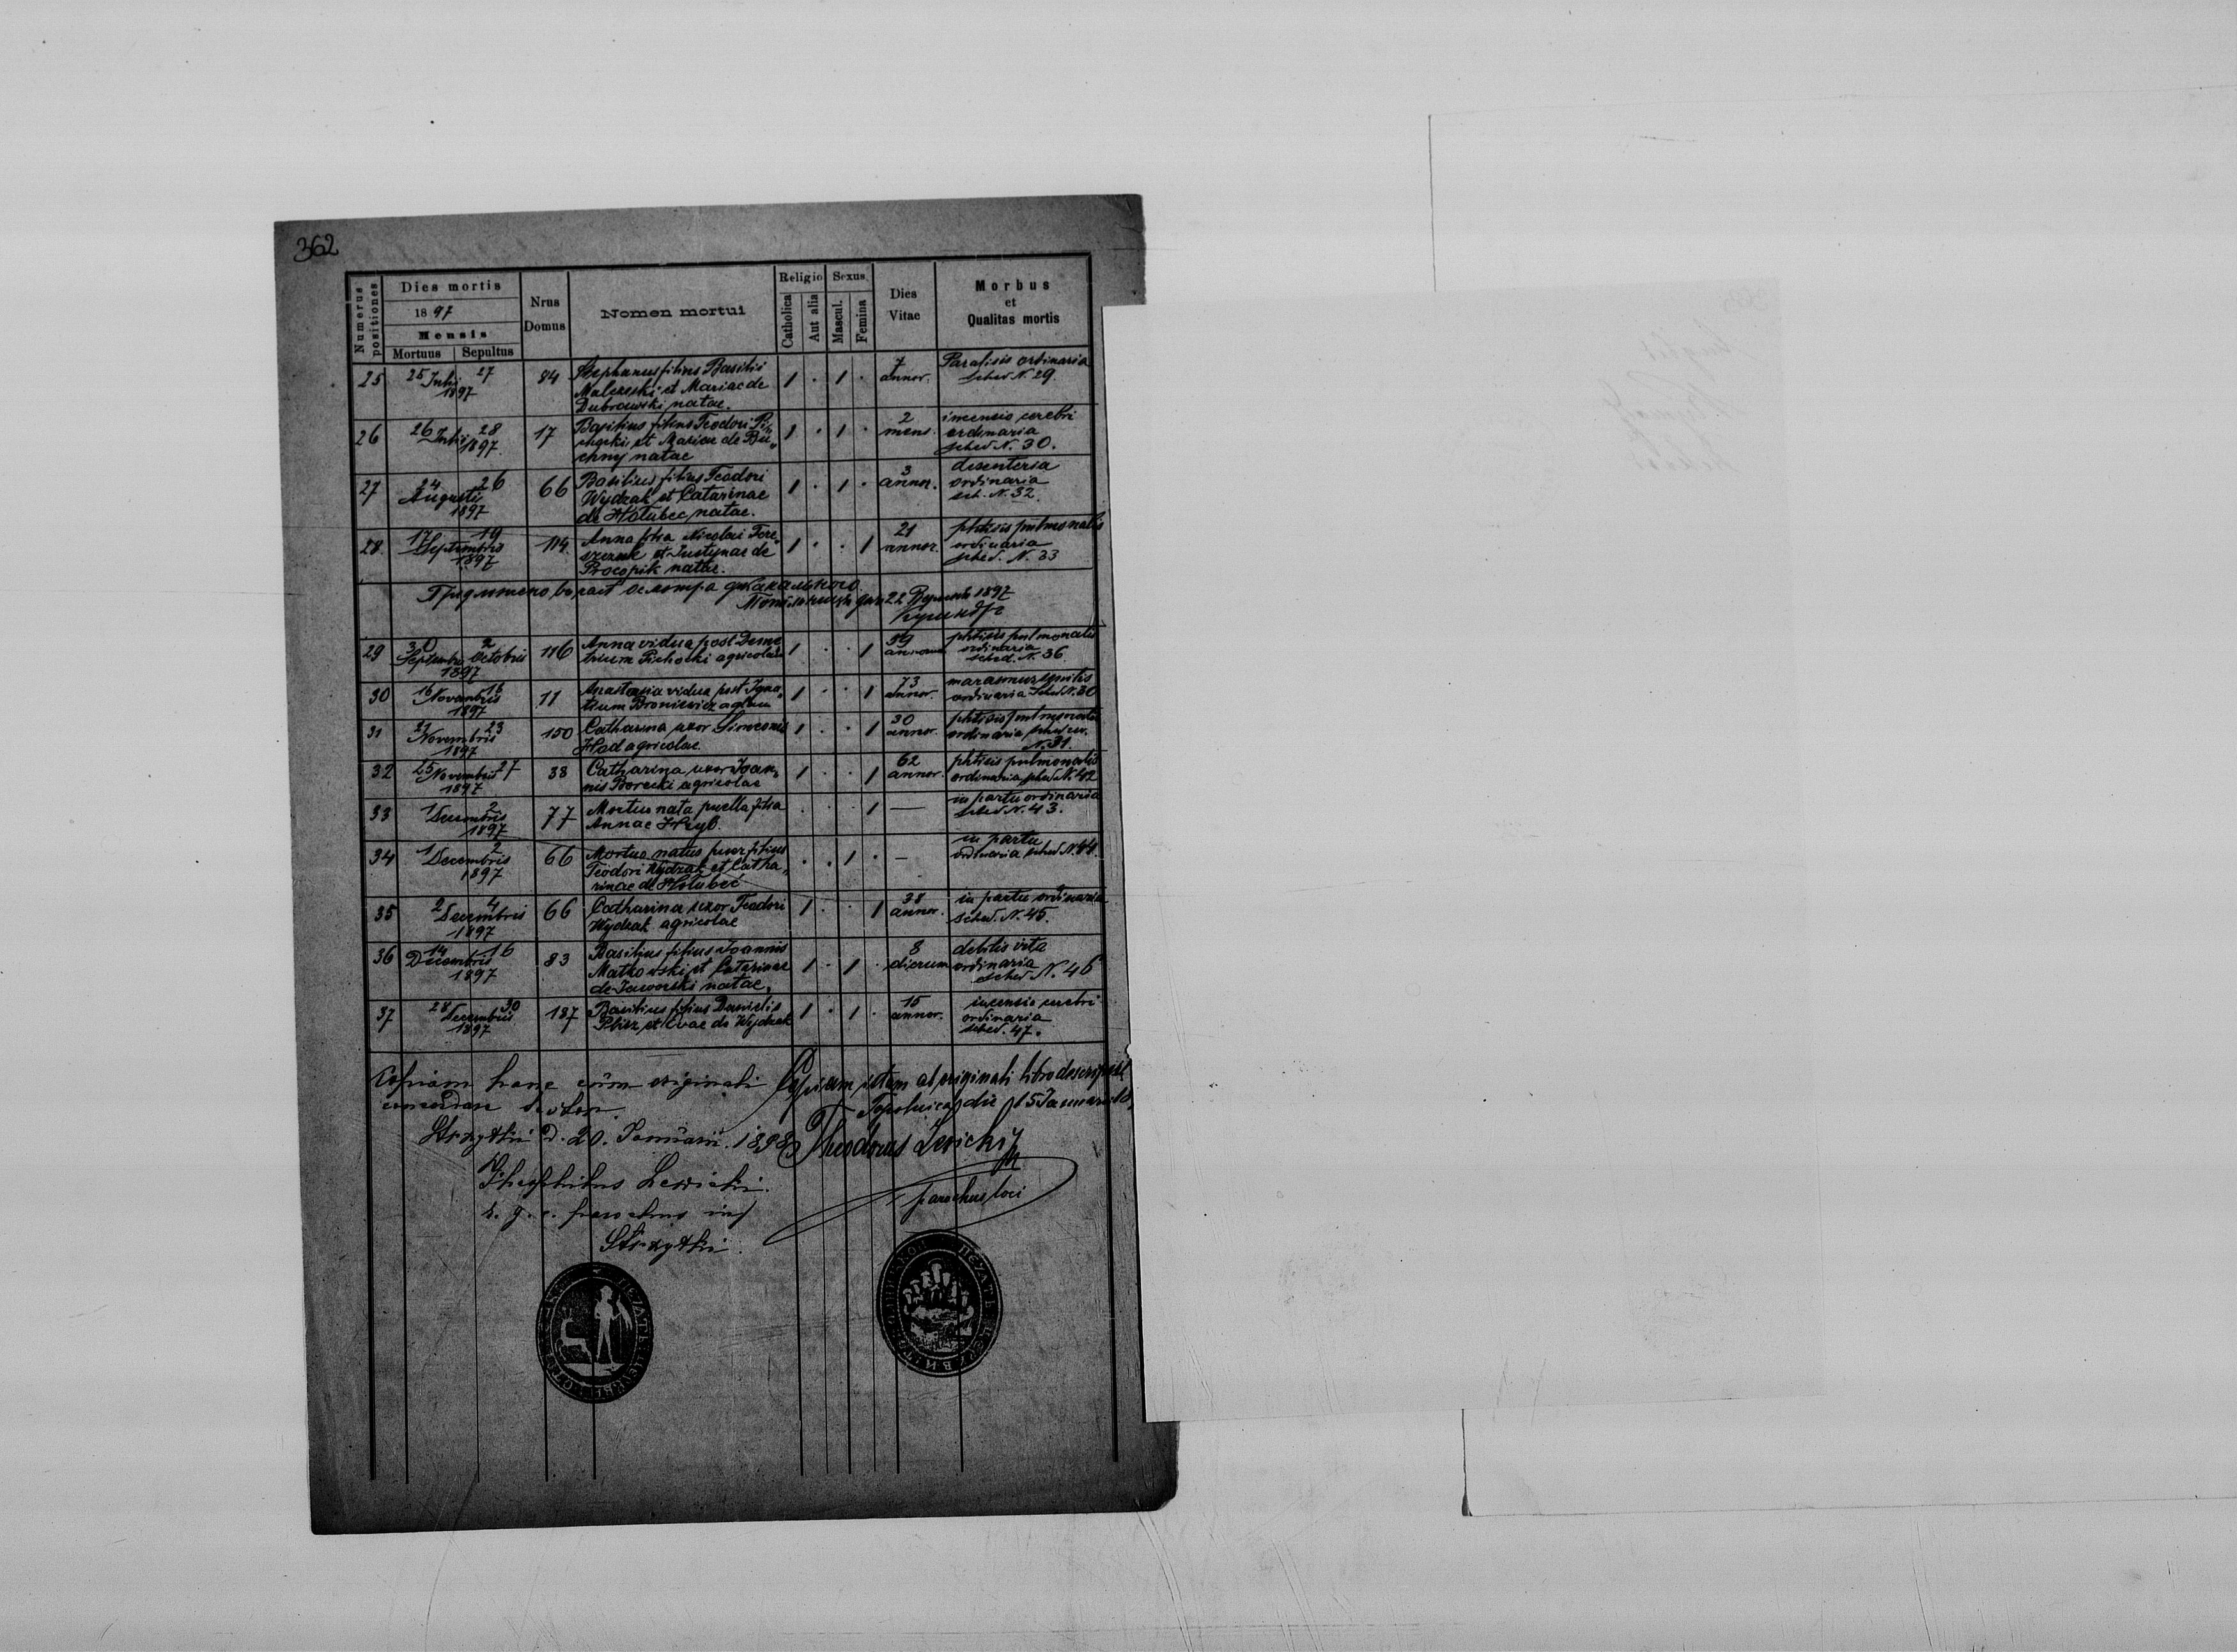 362
Numerus positiones
Dies mortis
1897
Mensis
Mortuus Sepultus
Nrus Domus
Nomen mortui
Religio
Catholica
Aut alia
Sexus
Mascul.
Femina
Dies Vitae
Morbus
et
Qualitas mortis
25 25 Julii 27 1897 84 Stephanus filius Basilii 1 . 1 . 7 annor. Paralisis ordinaria
et Mariae de sched N. 29.
Dubrawski natae.
26 26 Julii 28 1897 17 Basilius filius Teodori 1 . 1 . 2 mens. incensio cerebri
et Mariae de ordinaria
natae sched N. 30.
27 24 Augusti 26 1897 66 Basilius filius Teodori 1 . 1 . 3 annor. desenteria
Wydrak et Catarinae ordinaria
de Hołubec natae. sch. N. 32.
28 17 Septembris 19 1897 114 Anna filia Nicolai 1 . . 1 21 annor. phtisis pulmonalis
et Justynae de ordinaria
Procopik natae. sched. N. 33
22 1897
29 30 Septembr. 2 Octobris 1897 116 Anna vidua post Deme 1 . . 1 59 annorum phtisis pulmonalis
trium Pichocki agricolae ordinaria
sched. N. 36
30 16 Novembris 18 1897 11 Anastasia vidua post Igna 1 . . 1 73 annor. marasmus senilis
tium Broniewicz ordinaria sched N. 30
31 21 Novembris 23 1897 150 Catharina uxor Simeonis 1 . . 1 30 annor. phtisis pulmonalis
Had agricolae. ordinaria
N. 31.
32 25 Novembris 27 1897 38 Catharina uxor Joan, 1 . . 1 62 annor. phtisis pulmonalis
nis Borecki agricolae ordinaria sched N. 42
33 1 Decembris 2 1897 77 Mortua nata puella filia . . . 1 — in partu ordinaria
Annae Hryb. sched N. 43.
34 1 Decembris 2 1897 66 Mortuo natus puer filius . . 1 . — in partu
Teodori Wydrak et Catha, ordinaria sched N. 44.
rinae de Hołubec
35 2 Decembris 4 1897 66 Catharina uxor Teodori 1 . . 1 38 annor. in partu ordinaria
Wydrak agricolae sched. N. 45.
36 14 Decembris 16 1897 83 Basilius filius Joannis 1 . 1 . 8 dierum debilis vita
Matkowski et Catarinae ordinaria
de Jaworski natae, sched N. 46
37 28 Decembris 30 1897 187 Basilius filius Danielis 1 . 1 . 15 annor. incensio cerebri
et Evae de Wydrak ordinaria
sched. 47.
Copiam hanc cum originali
concordare
Strzyłki d. 20. Januarii 1898
Theophilus Lewicki
r. g. c. parochus in
Strzyłki
Copiam istam ab originali libro descripsit
die 15 Januarii
Theodorus Lewicki
parochus loci